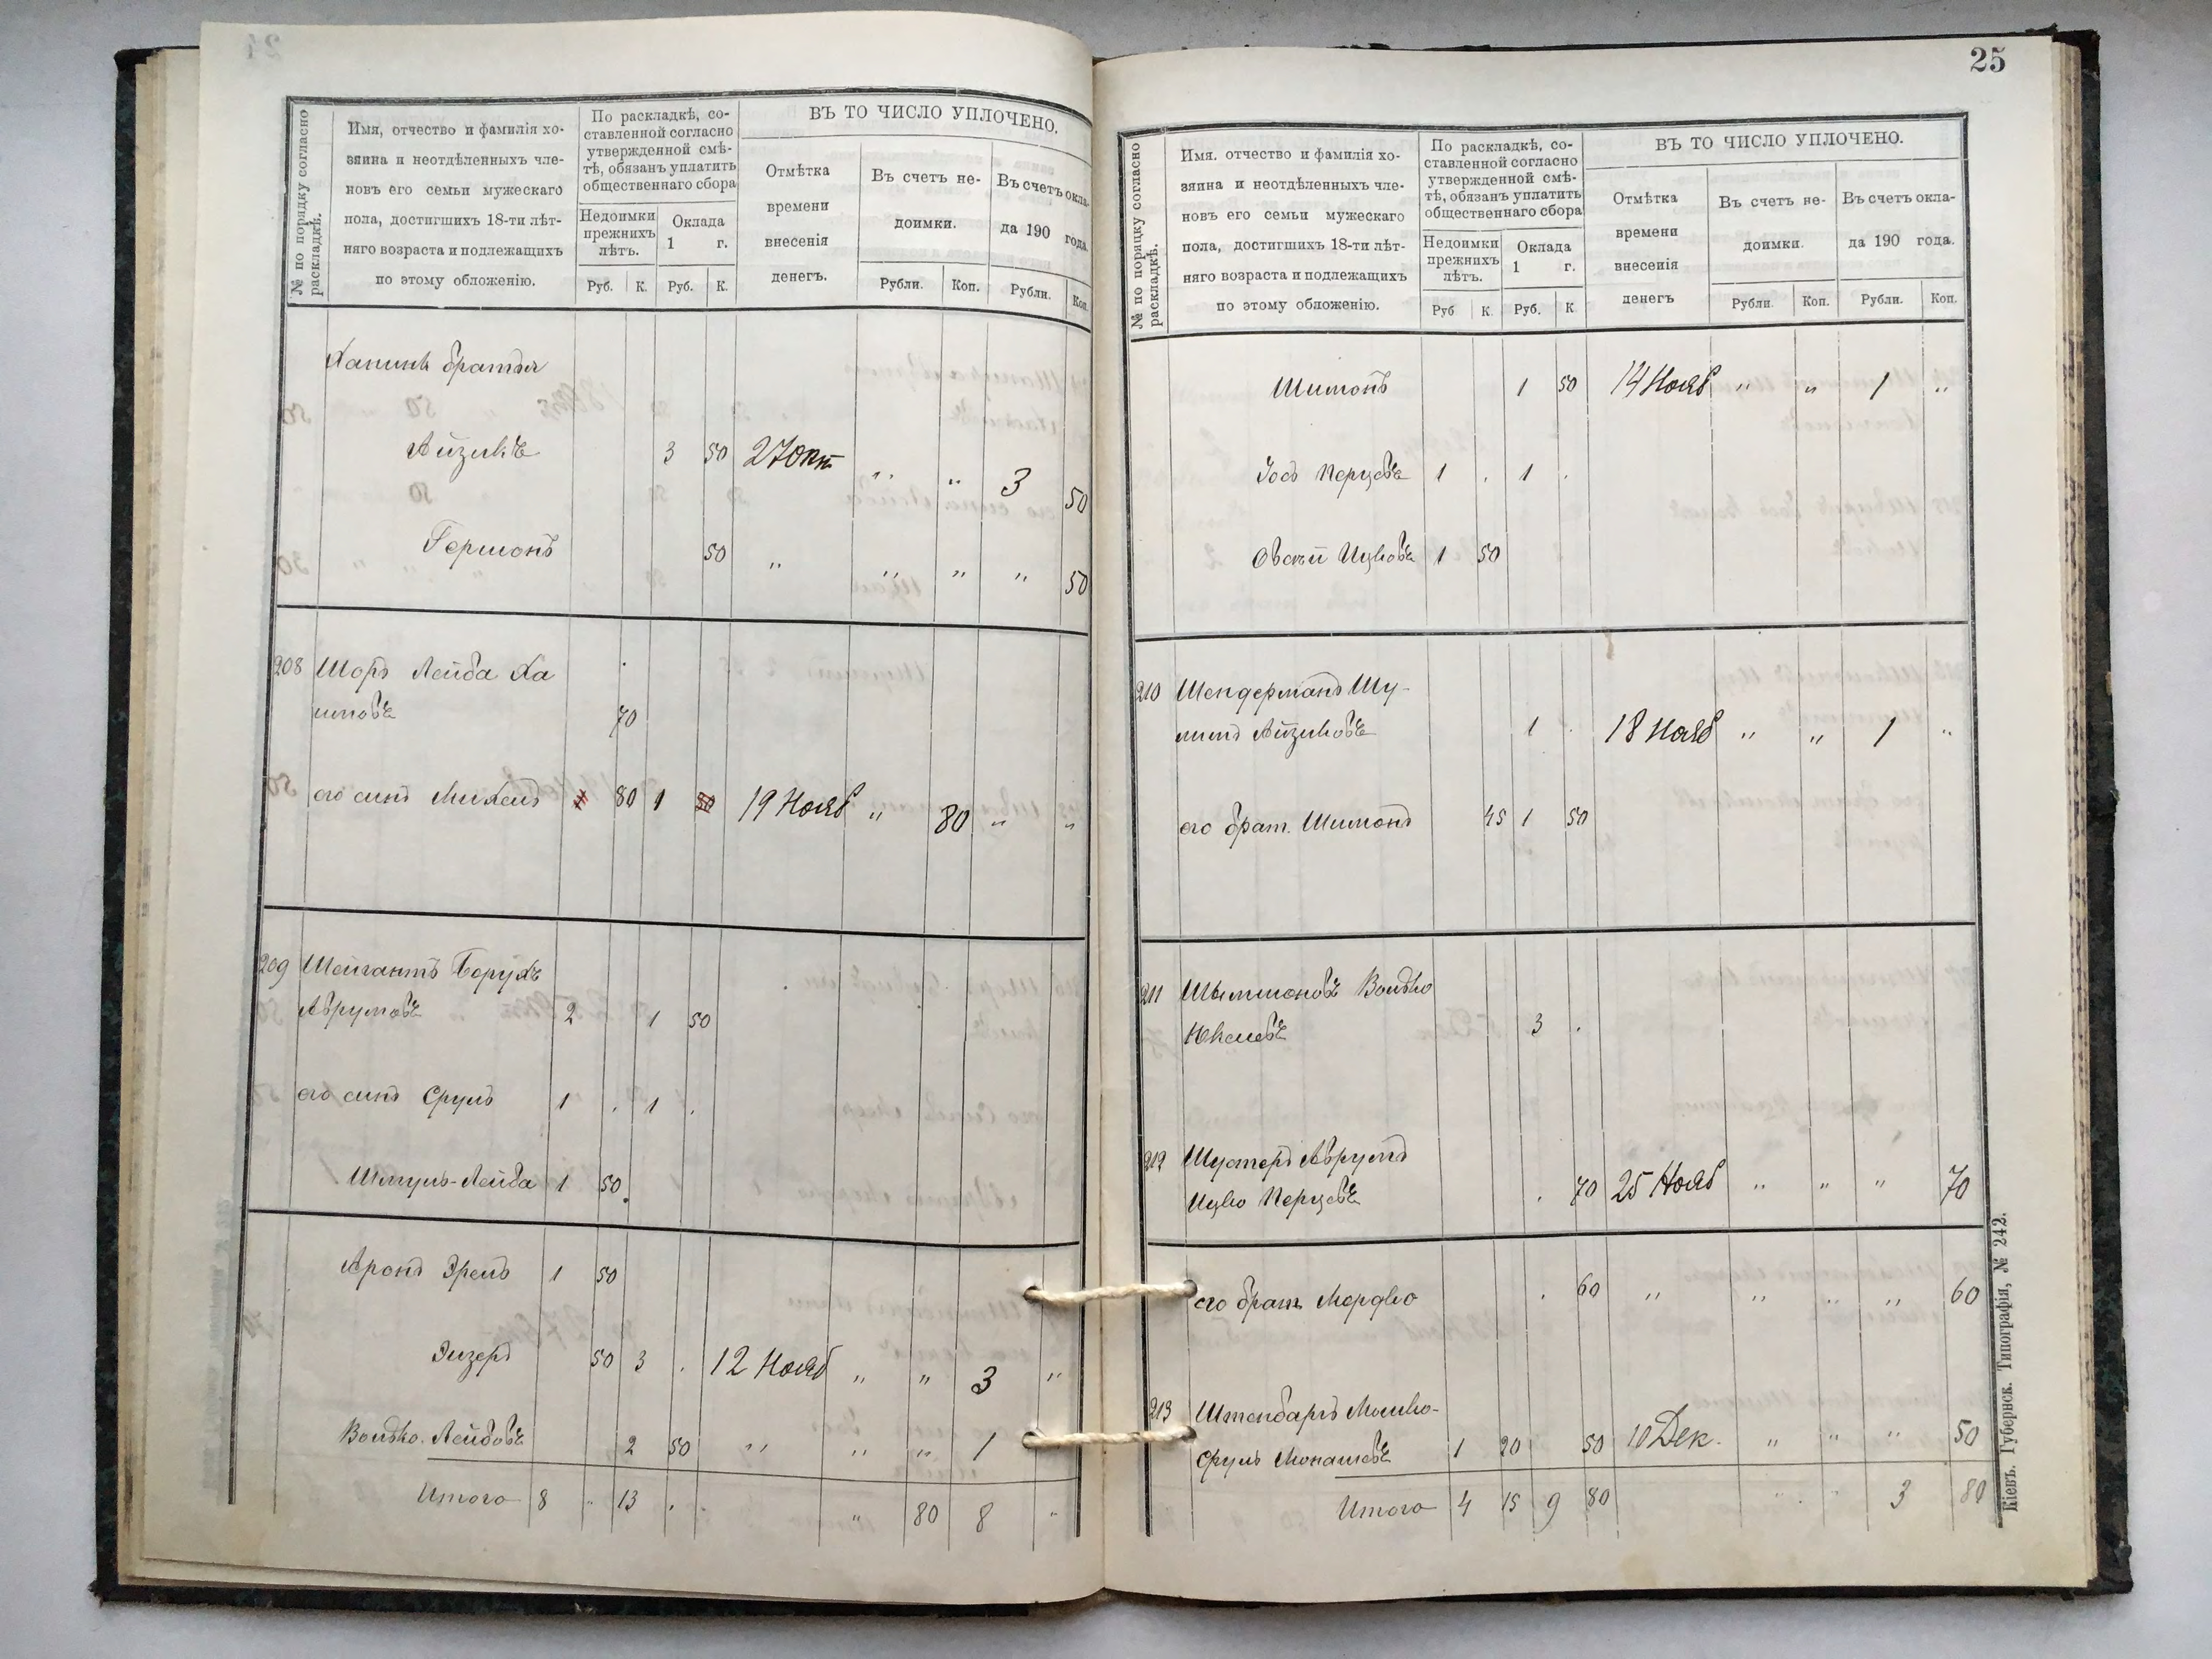 № по порядку согласно
раскладкѣ.
Имя, отчество и фамилія хо-
зяина и неотдѣленныхъ чле-
новъ его семьи мужескаго
пола, достигшихъ 18-ти лѣт-
няго возраста и подлежащихъ
по этому обложенію.
По раскладкѣ, со-
ставленной согласно
утвержденной смѣ-
тѣ, обязанъ уплатить
общественнаго сбора
Недоимки
прежнихъ
лѣтъ.
Оклада
1 г.
Руб. К. Руб. К.
ВЪ ТО ЧИСЛО УПЛОЧЕНО.
Отмѣтка
времени
внесенія
денегъ.
Въ счетъ не-
доимки.
Въ счетъ окла-
да 190 года.
Рубли. Коп. Рубли. Коп.
братья
Айзикъ 3 50 27 Окт " " 3 50
Гершонъ 50 " " " " 50
208 Шоръ Лейба Ха
имовъ 70
его сынъ Михель 80 1 50 19 Нояб " 80 " "
209 Шейгантъ Борухъ
Аврумовъ 2 1 50
его сынъ Сруль 1 . 1 .
Шмуль-Лейба 1 50
Аронъ Эрель 1 50
Элзеръ 50 3 . 12 Нояб " " 3 "
Волько Лейбовъ 2 50 " " " 1
Итого 8 " 13 . " 80 8 "
25
№ по порядку согласно
раскладкѣ.
Имя. отчество и фамилія хо-
зяина и неотдѣленныхъ чле-
новъ его семьи мужескаго
пола, достигшихъ 18-ти лѣт-
няго возраста и подлежащихъ
по этому обложенію.
По раскладкѣ, со-
ставленной согласно
утвержденной смѣ-
тѣ, обязанъ уплатить
общественнаго сбора
Недоимки
прежнихъ
лѣтъ.
Оклада
1 г.
Руб К. Руб. К
ВЪ ТО ЧИСЛО УПЛОЧЕНО.
Отмѣтка
времени
внесенія
денегъ
Въ счетъ не-
доимки.
Въ счетъ окла-
да 190 года.
Рубли. Коп. Рубли. Коп.
Шимонъ 1 50 14 Нояб " " 1 "
Іось Перцовъ 1 . 1 .
Овсѣй Ицковъ 1 50
210 Шендерманъ Шу-
лимъ Айзиковъ 1 . 18 Нояб " " 1 "
его брат. Шимонъ 45 1 50
211 Волько
Юкелевъ 3 .
212 Шустеръ Аврумъ
Ицко Перцовъ . 70 25 Нояб " " " 70
его братъ Мордко . 60 " " " " 60
213 Штенбаръ Мошко-
Сруль Монашевъ 1 20 50 10 Дек. " " " 50
Итого 4 15 9 80 " " 3 80
Кіевъ. Губернск. Типографія, № 242.